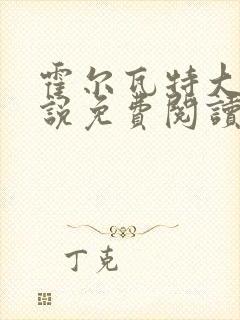 霍尔瓦特大
說免費閱讀
丁克